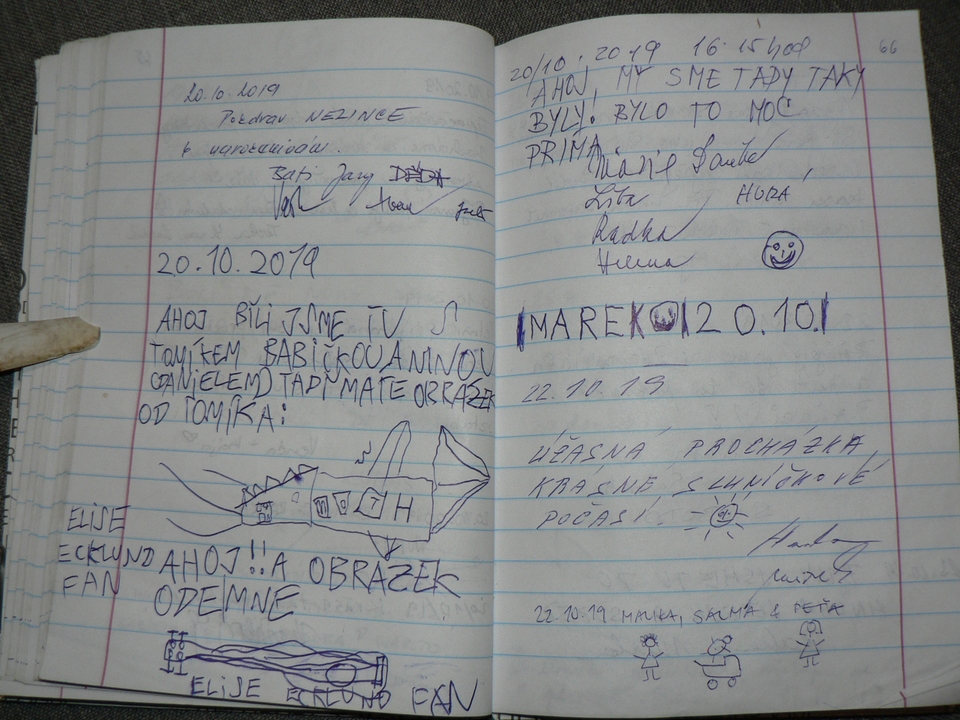 20.10.2019
Pozdrav NEZINCE
k narozeninám.
20.10.2019
AHOJ BÍLI JSME TU S
TOMÍKEM BABIČKOU A NINOU
(DANIELEM) TADY MATE OBRÁZEK
OD TOMÍKA:
H
ELISE
ECKLUND
FAN
AHOJ!! A OBRAZEK
ODEMNE
ELISE ECKLUND FAN
66
20/10. 2019 16.15 hod
AHOJ, MY SME TADY TAKY
BYLY! BYLO TO MOC
PRIMA
Líba HURÁ
Radka
MAREK 20.10.
22.10.19
ÚŽASNÁ PROCHÁZKA,
KRÁSNÉ SLUNÍČKOVÉ
POČASÍ.
22.10.19 MALIKA, SALMA & PEŤA